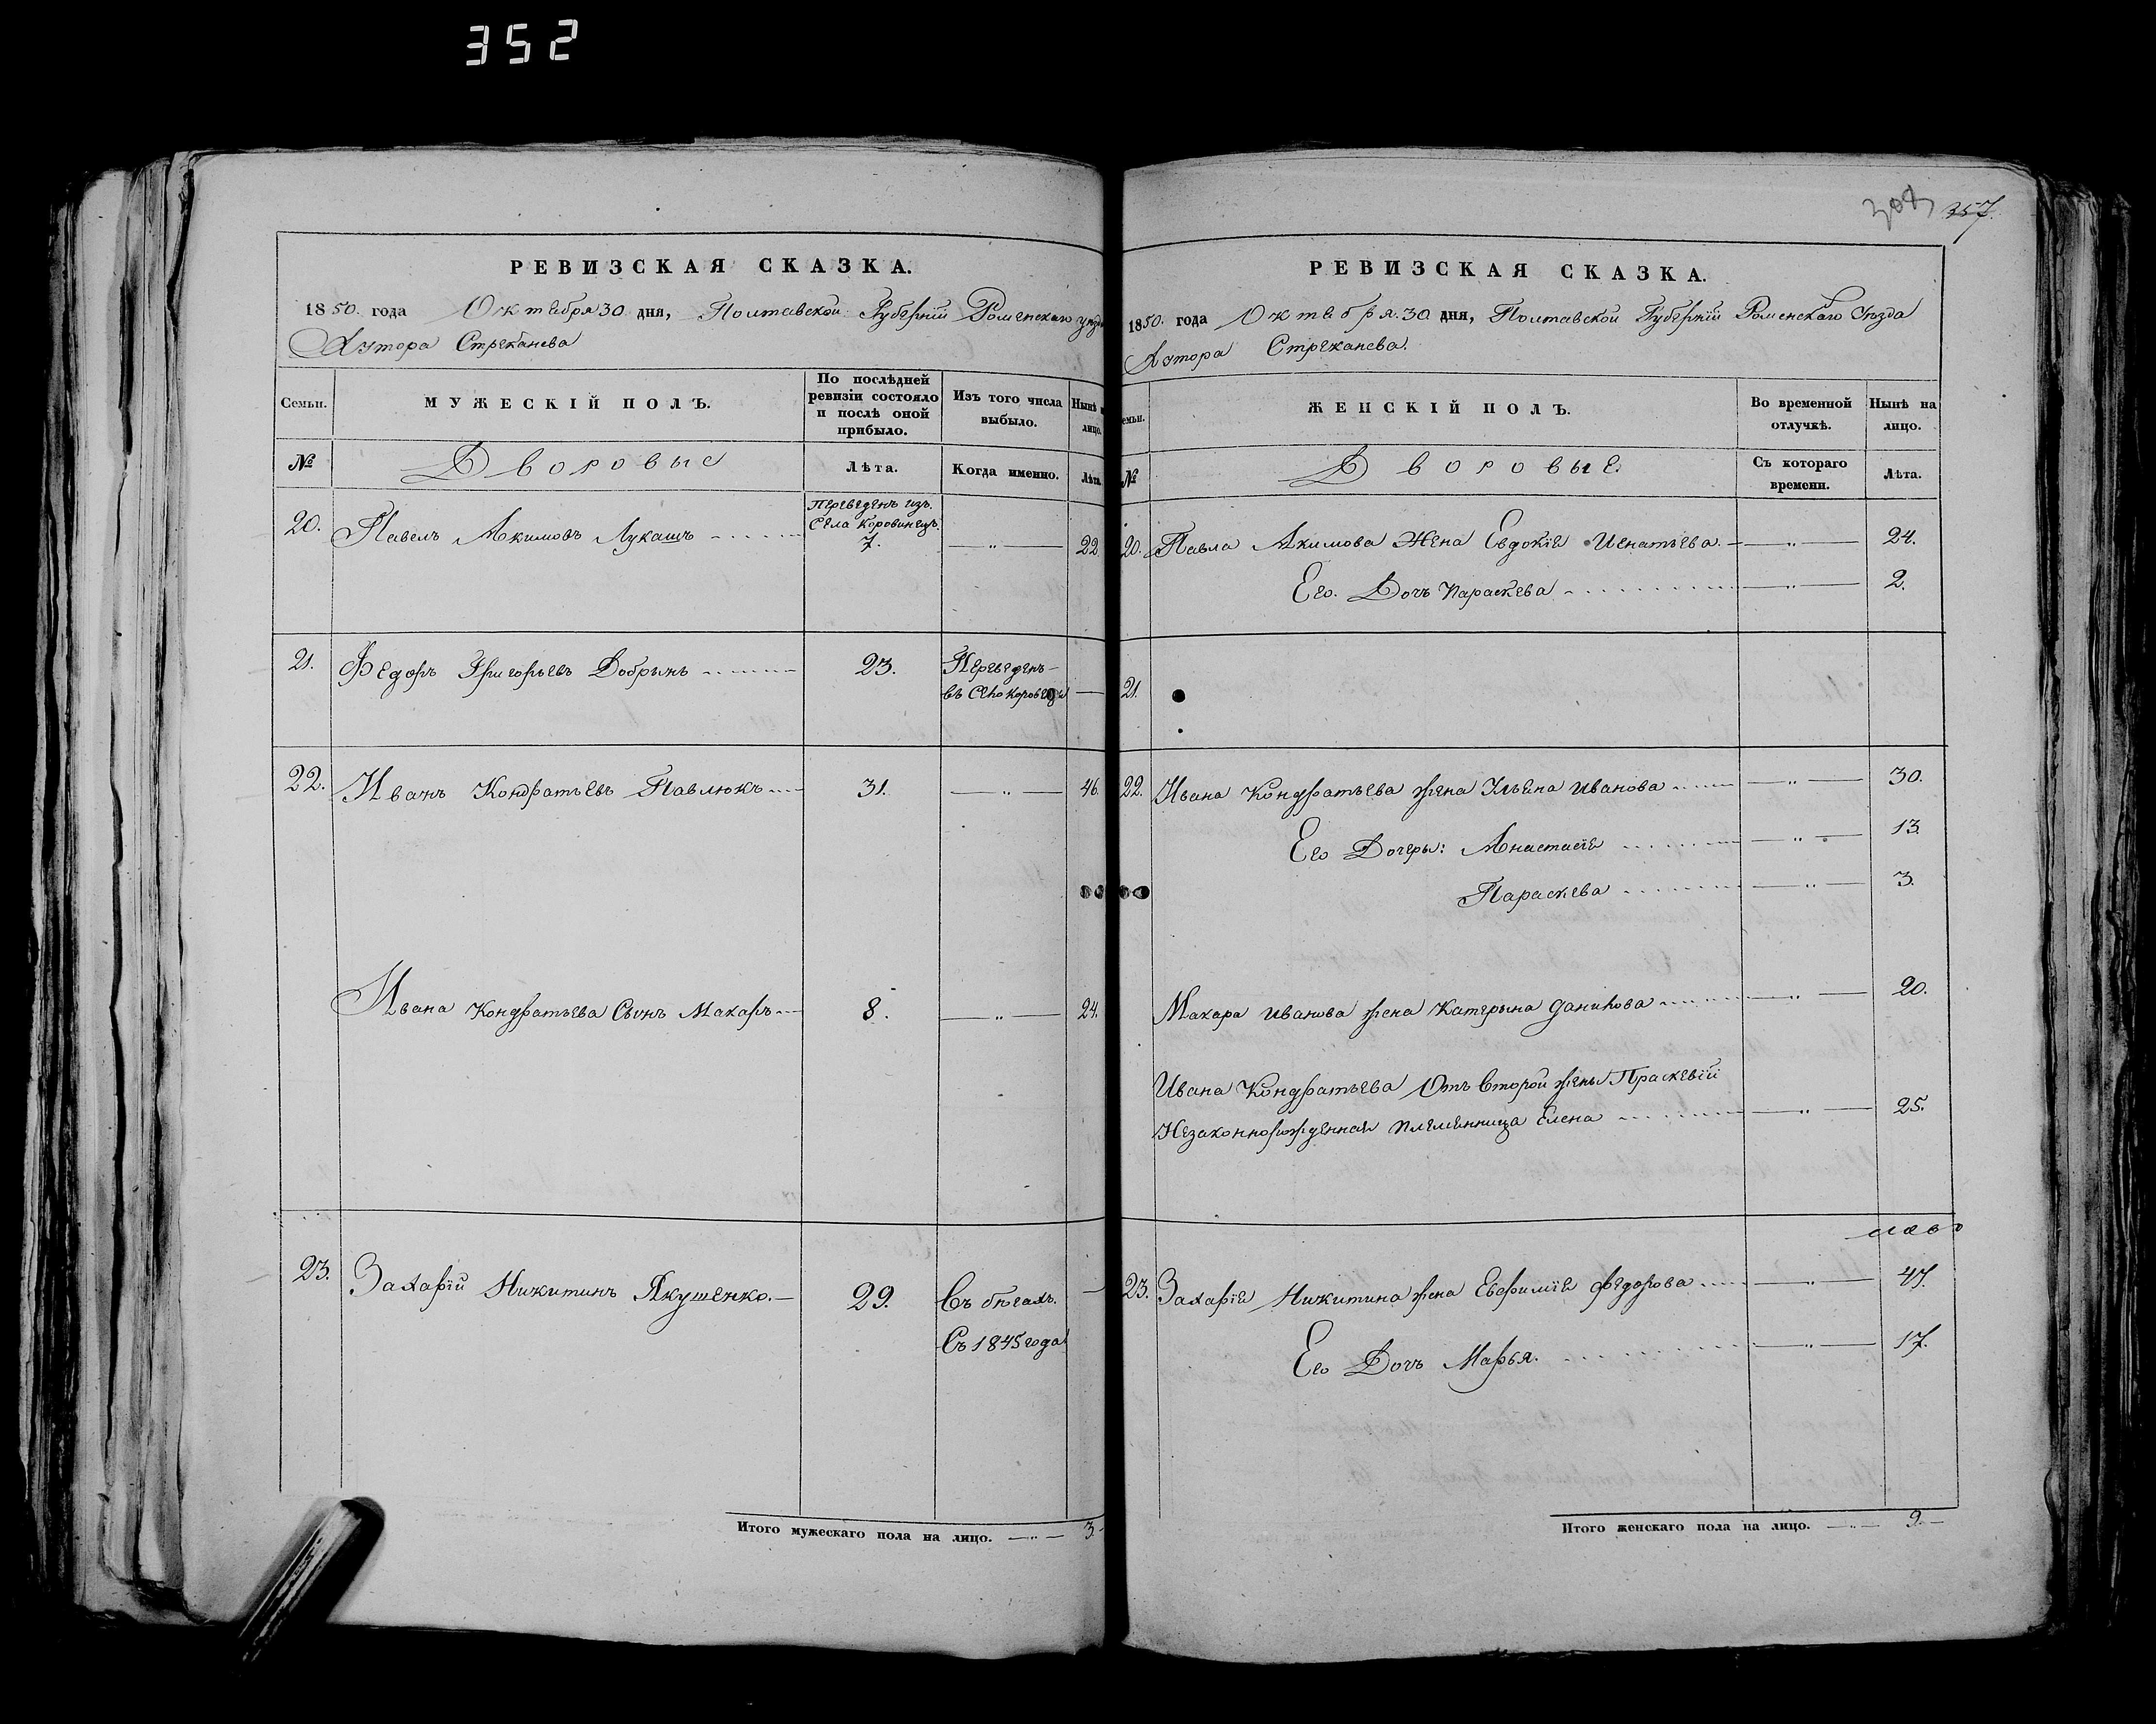 352
РЕВИЗСКАЯ СКАЗКА.
1850. года Октября 30 дня, Полтавской Губернїи Роменскаго уезда
Хутора Стрекачева
Семьи.
МУЖЕСКІЙ ПОЛЪ.
По послѣдней ревизіи состояло и послѣ оной прибыло.
Изъ того числа выбыло.
Нынѣ на лицо.
№
Дворовые
Лѣта.
Когда именно.
Лѣта.
Переведенъ изъ
Села Коровинецъ.
20. Павелъ Акимовъ Лукашъ 7. — „ — 22
21. Федоръ Григорьевъ Добрынь 23. Переведенъ
въ Село Коровинци —
22. Иванъ Кондратьевъ Павлюкъ 31. — „ — 46.
Ивана Кондратьева Сынъ Макаръ 8. — „ — 24.
23. Захарїй Никитинъ Якушенко. 29. Въ бѣгахъ. —
Съ 1845 года
Итого мужескаго пола на лицо. — „ — 3.
357.
РЕВИЗСКАЯ СКАЗКА.
1850. года Октября. 30 дня, Полтавской Губернїи Роменскаго Уезда
Хутора Стрекачева.
Семьи.
ЖЕНСКІЙ ПОЛЪ.
Во временной отлучкѣ.
Нынѣ на лицо.
№
Дворовые.
Съ котораго времени.
Лѣта.
20. Павла Акимова Жена Евдокїя Игнатьева. — „ — 24.
Его. Дочь Параскева — „ — 2.
21.
22. Ивана Кондратьева жена Ульяна Иванова — „ — 30.
Его Дочеры: Анастасїя — „ — 13.
Параскева — „ — 3.
Макара Иванова жена Катерына Данилова — „ — 20.
Ивана Кондратьева Отъ второй жены Праскевїи
Незаконнорожденная племянница Елена — „ — 25.
23. Захарїя Никитина жена Евфимїя Федорова — „ — 47.
Его Дочь Марья. — „ — 17.
Итого женскаго пола на лицо. — „ — 9. —